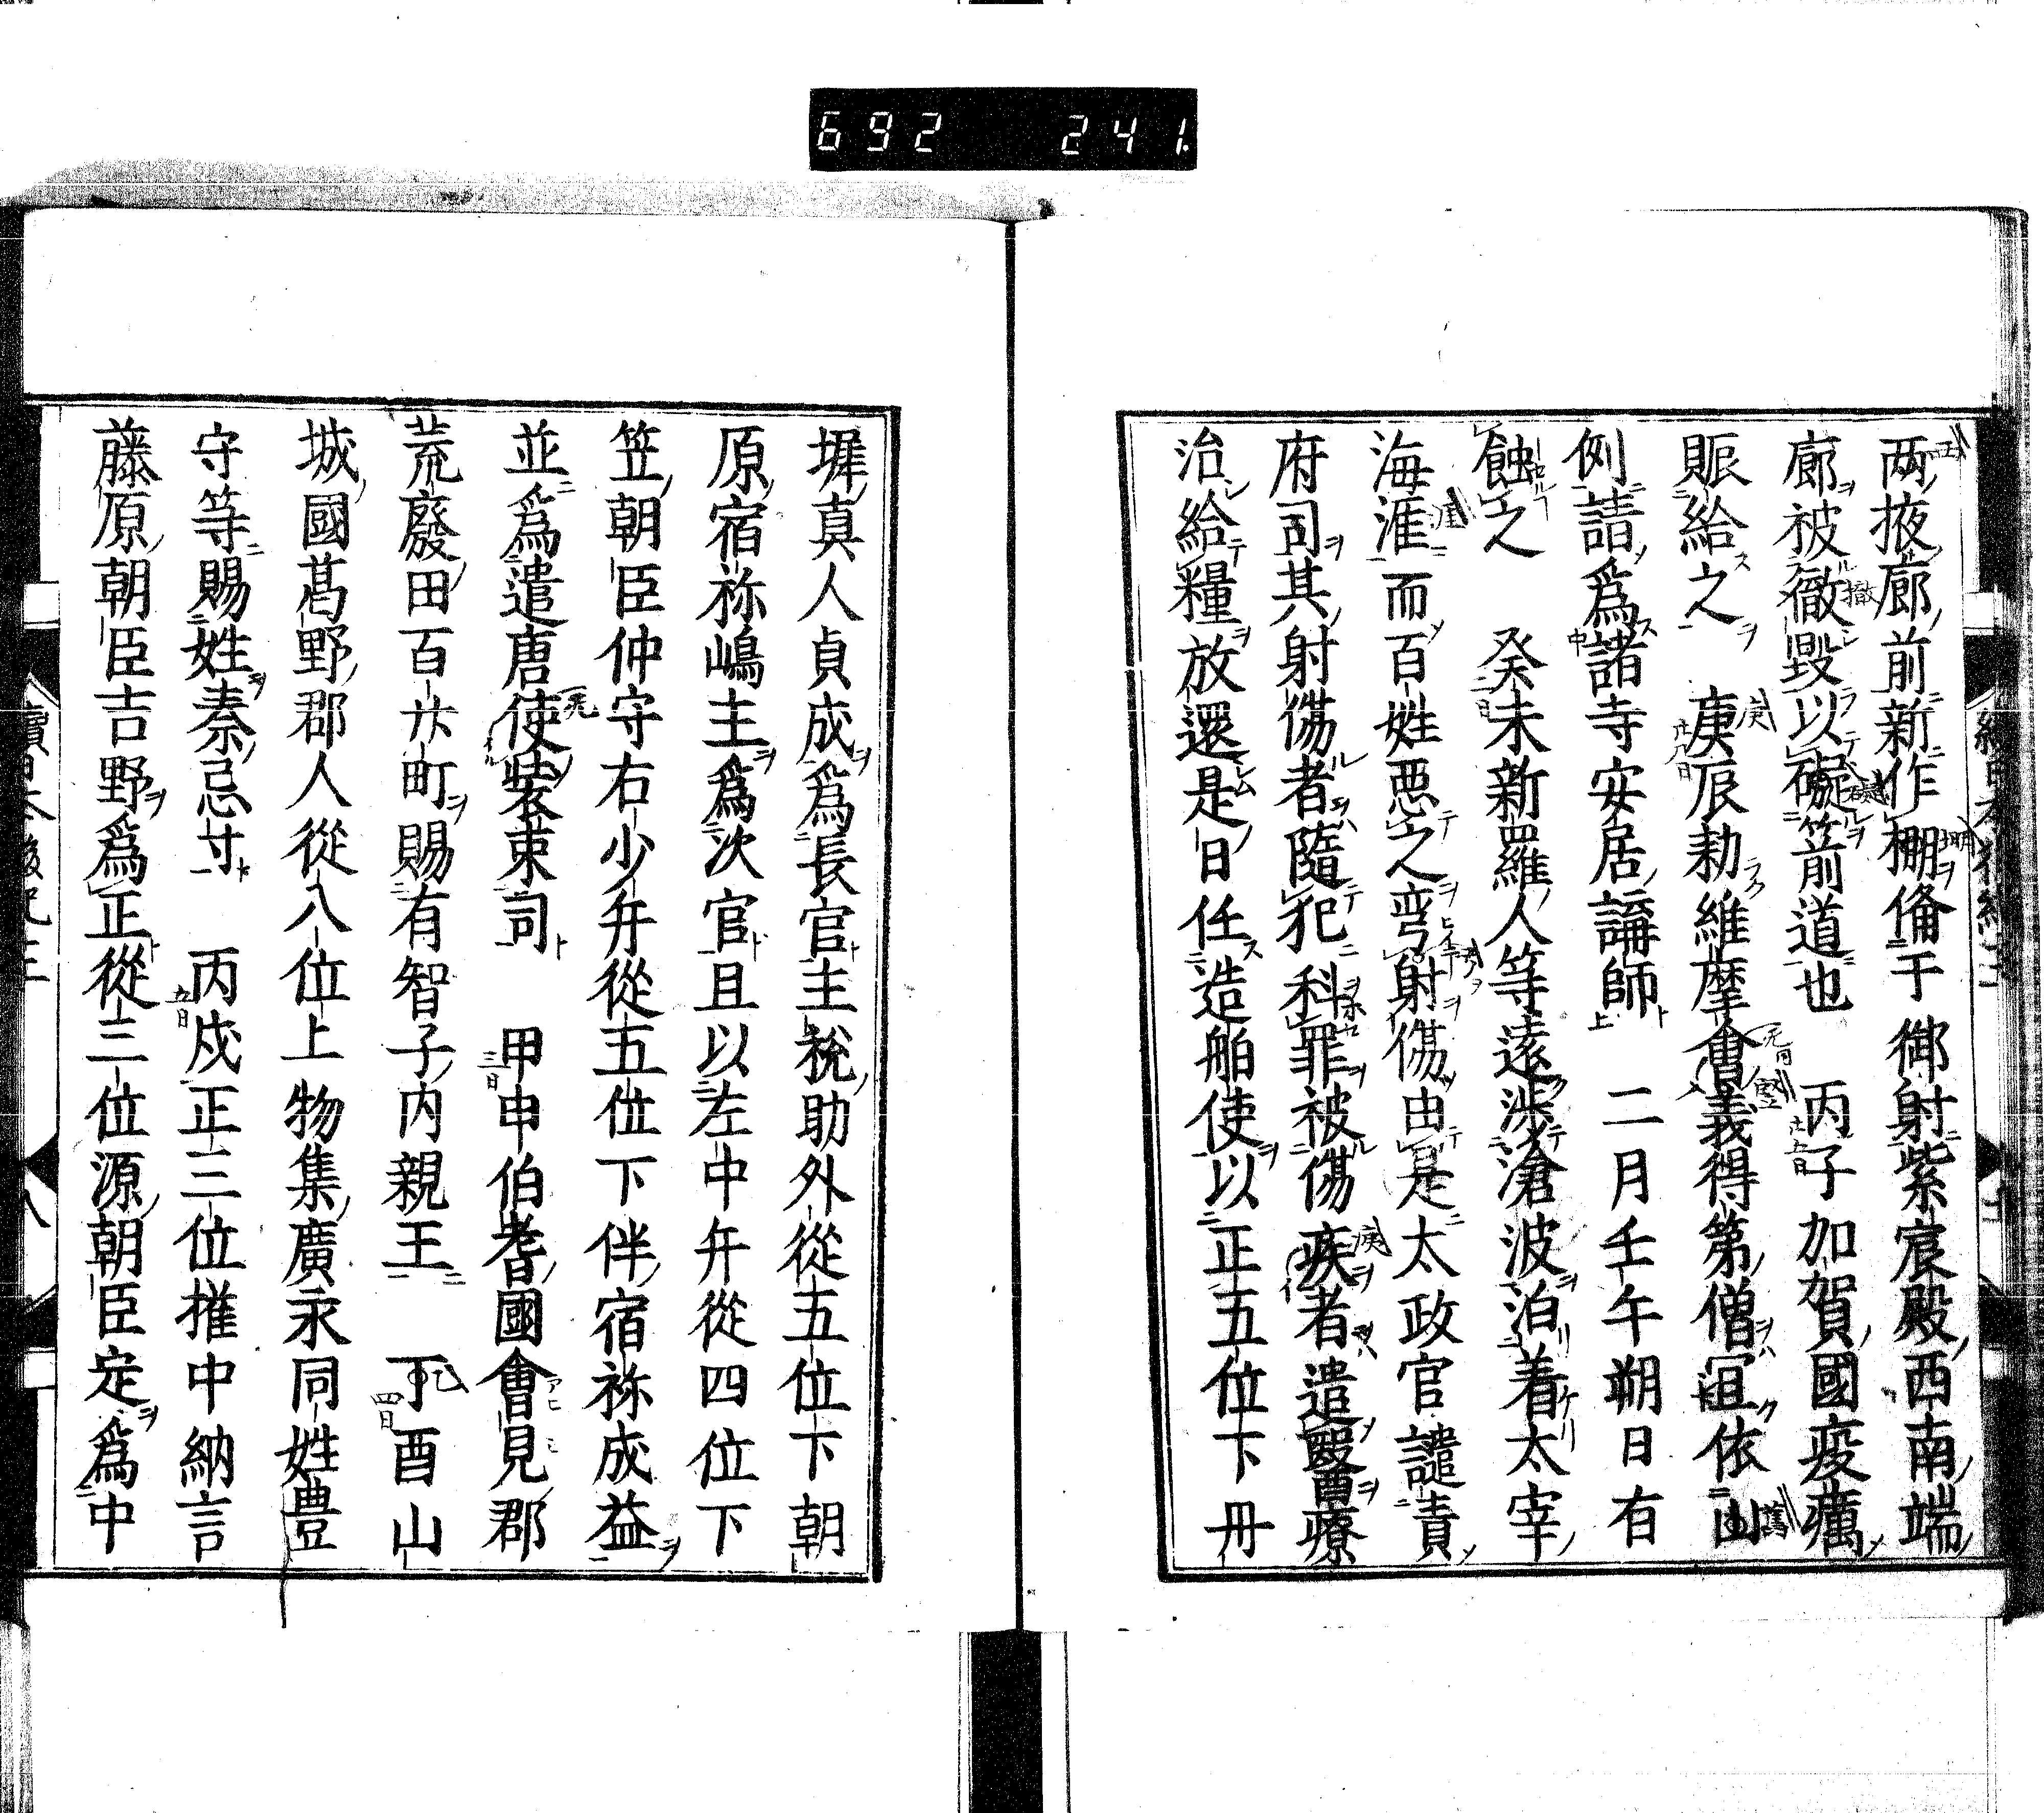 692 241
両掖廊前新作棚俻于御射紫宸殿西南端
廊被徹毀以礙箭道也 丙子加賀國疫癘
賑給之 庚辰勅維摩會義得第僧冝依
例請爲諸寺安居講師 二月壬午朔日有
蝕之 癸未新羅人等遠涉滄波泊着太宰
海涯而百姓惡之弯射傷由是太政官譴責
府司其射傷者隨犯科罪被傷疾者遣醫療
治給糧放還是日任造舶使以正五位下丹
墀真人貞成爲長官主稅助外從五位下朝
原宿祢嶋主爲次官且以左中弁從四位下
笠朝臣仲守右少弁從五位下伴宿祢成益
並爲遣唐使裝束司 甲申伯耆國會見郡
荒廢田百廿町賜有智子内親王 丁酉山
城國葛野郡人從八位上物集廣永同姓豊
守等賜姓秦忌寸 丙戌正三位權中納言
藤原朝臣吉野爲正從三位源朝臣定爲中